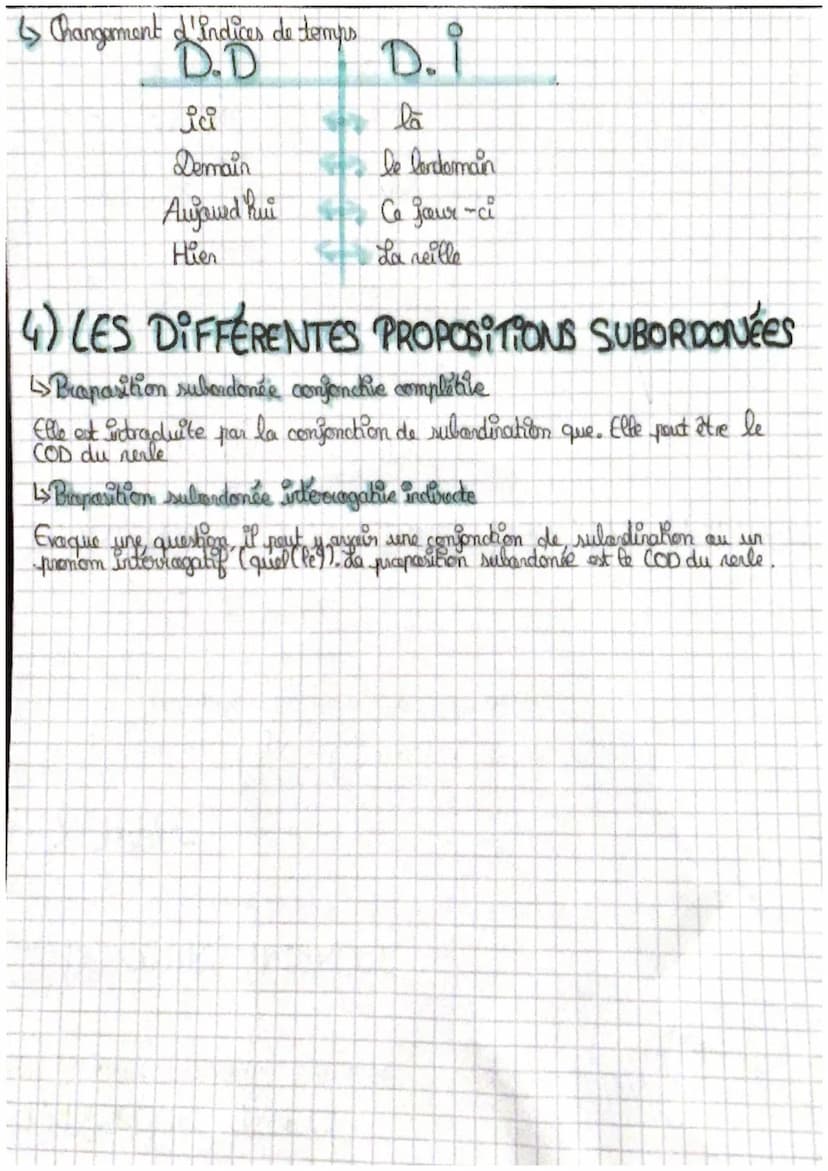 ↳ Changement d'indices de temps
D.D D.i
ici ↔ là
Demain ↔ le lendemain
Aujourd'hui ↔ Ce jour-ci
Hier ↔ La veille
4) LES DIFFÉRENTES PROPOSITIONS SUBORDONÉES
↳ Proposition subordonée conjonctive complétive
Elle est introduite par la conjonction de subordination que. Elle peut être le
COD du verbe
↳ Proposition subordonée intérrogative indirecte
Evoque une question, il peut y avoir une conjonction de subordination ou un
pronom intérrogatif (quel(le)). La proposition subordonée est le COD du verbe.